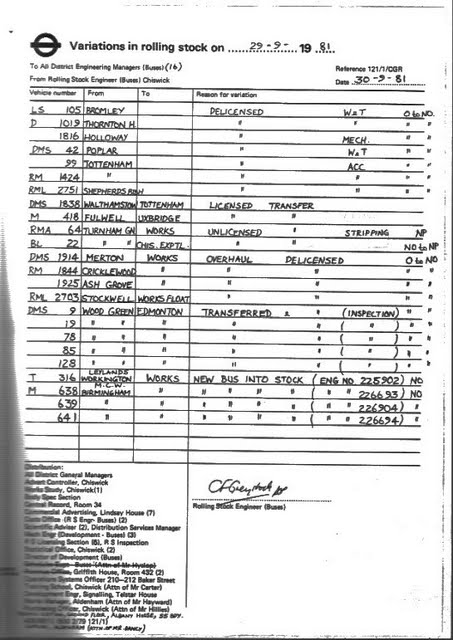 Variations in rolling stock on 29-9- 19 81.
To All District Engineering Managers (Buses) (16)
Reference 121/1/CGR
From Rolling Stock Engineer (Buses) Chiswick
Date 30-9-81
Vehicle number From To Reason for variation
LS 105 BROMLEY DELICENSED W&T O to NO.
D 1019 THORNTON H. " " " "
1816 HOLLOWAY " MECH. " "
DMS 42 POPLAR " W&T " "
99 TOTTENHAM " ACC " "
RM 1424 " " " " " "
RML 2751 SHEPHERDS BSH " " " "
DMS 1838 WALTHAMSTOW TOTTENHAM LICENSED TRANSFER
M 418 FULWELL UXBRIDGE " "
RMA 64 TURNHAM GN WORKS UNLICENSED STRIPPING NP
BL 22 " " CHIS. EXPTL. " NO to NP
DMS 1914 MERTON WORKS OVERHAUL DELICENSED O to NO
RM 1844 CRICKLEWOOD " " " " "
1925 ASH GROVE " " " " "
RML 2703 STOCKWELL WORKS FLOAT " " " "
DMS 9 WOOD GREEN EDMONTON TRANSFERRED & " (INSPECTION) " "
19 " " " " " ( " ) " "
78 " " " " " ( " ) " "
85 " " " " " ( " ) " "
128 " " " " " ( " ) " "
T 316 LEYLANDS WORKINGTON WORKS NEW BUS INTO STOCK (ENG NO. 225902) NO
M 638 M.C.W. BIRMINGHAM " " " " " ( " " 226693) NO
639 " " " " " " ( " " 226904) "
641 " " " " " " ( " " 226694) "
Distribution:
All District General Managers
Advert Controller, Chiswick
Works Study, Chiswick (1)
Body Spec Section
Central Record, Room 34
Commercial Advertising, Lindsay House (7)
Office (R S Engr- Buses) (2)
Scientific Adviser (2), Distribution Services Manager
Engr (Development - Buses) (3)
Licensing Section (8), R S Inspection
Office, Chiswick (2)
of Development (Buses)
(Attn of Mr Hyslop)
Griffith House, Room 432 (2)
Operations Systems Officer 210-212 Baker Street
School, Chiswick (Attn of Mr Carter)
Engr, Signalling, Telstar House
Aldenham (Attn of Mr Hayward)
Officer, Chiswick (Attn of Mr Hillies)
FLOOR, ALBANY HOUSE, 55 BPY.
121/1)
Rolling Stock Engineer (Buses)